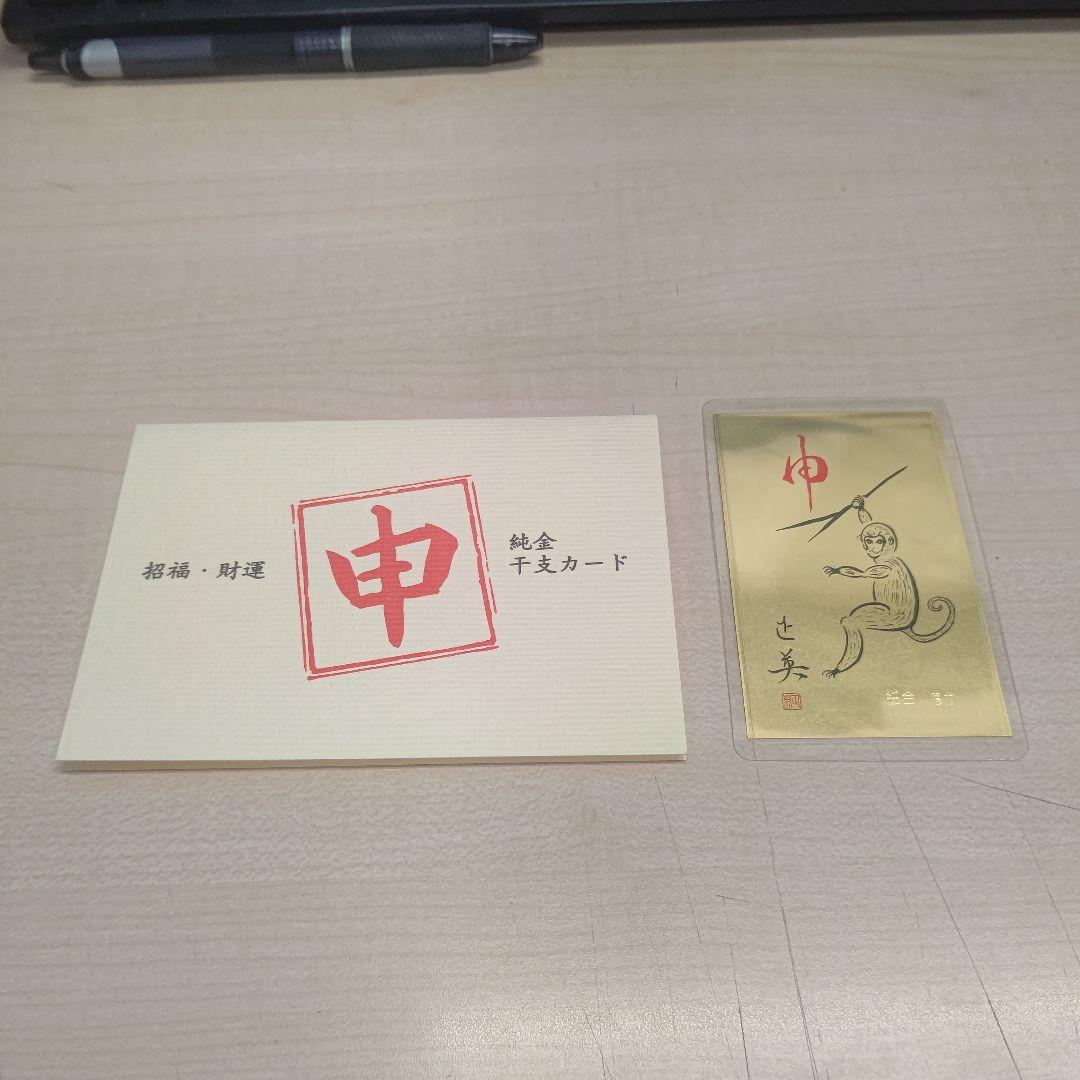 招福・財運
申
純金
干支カード
申
純金